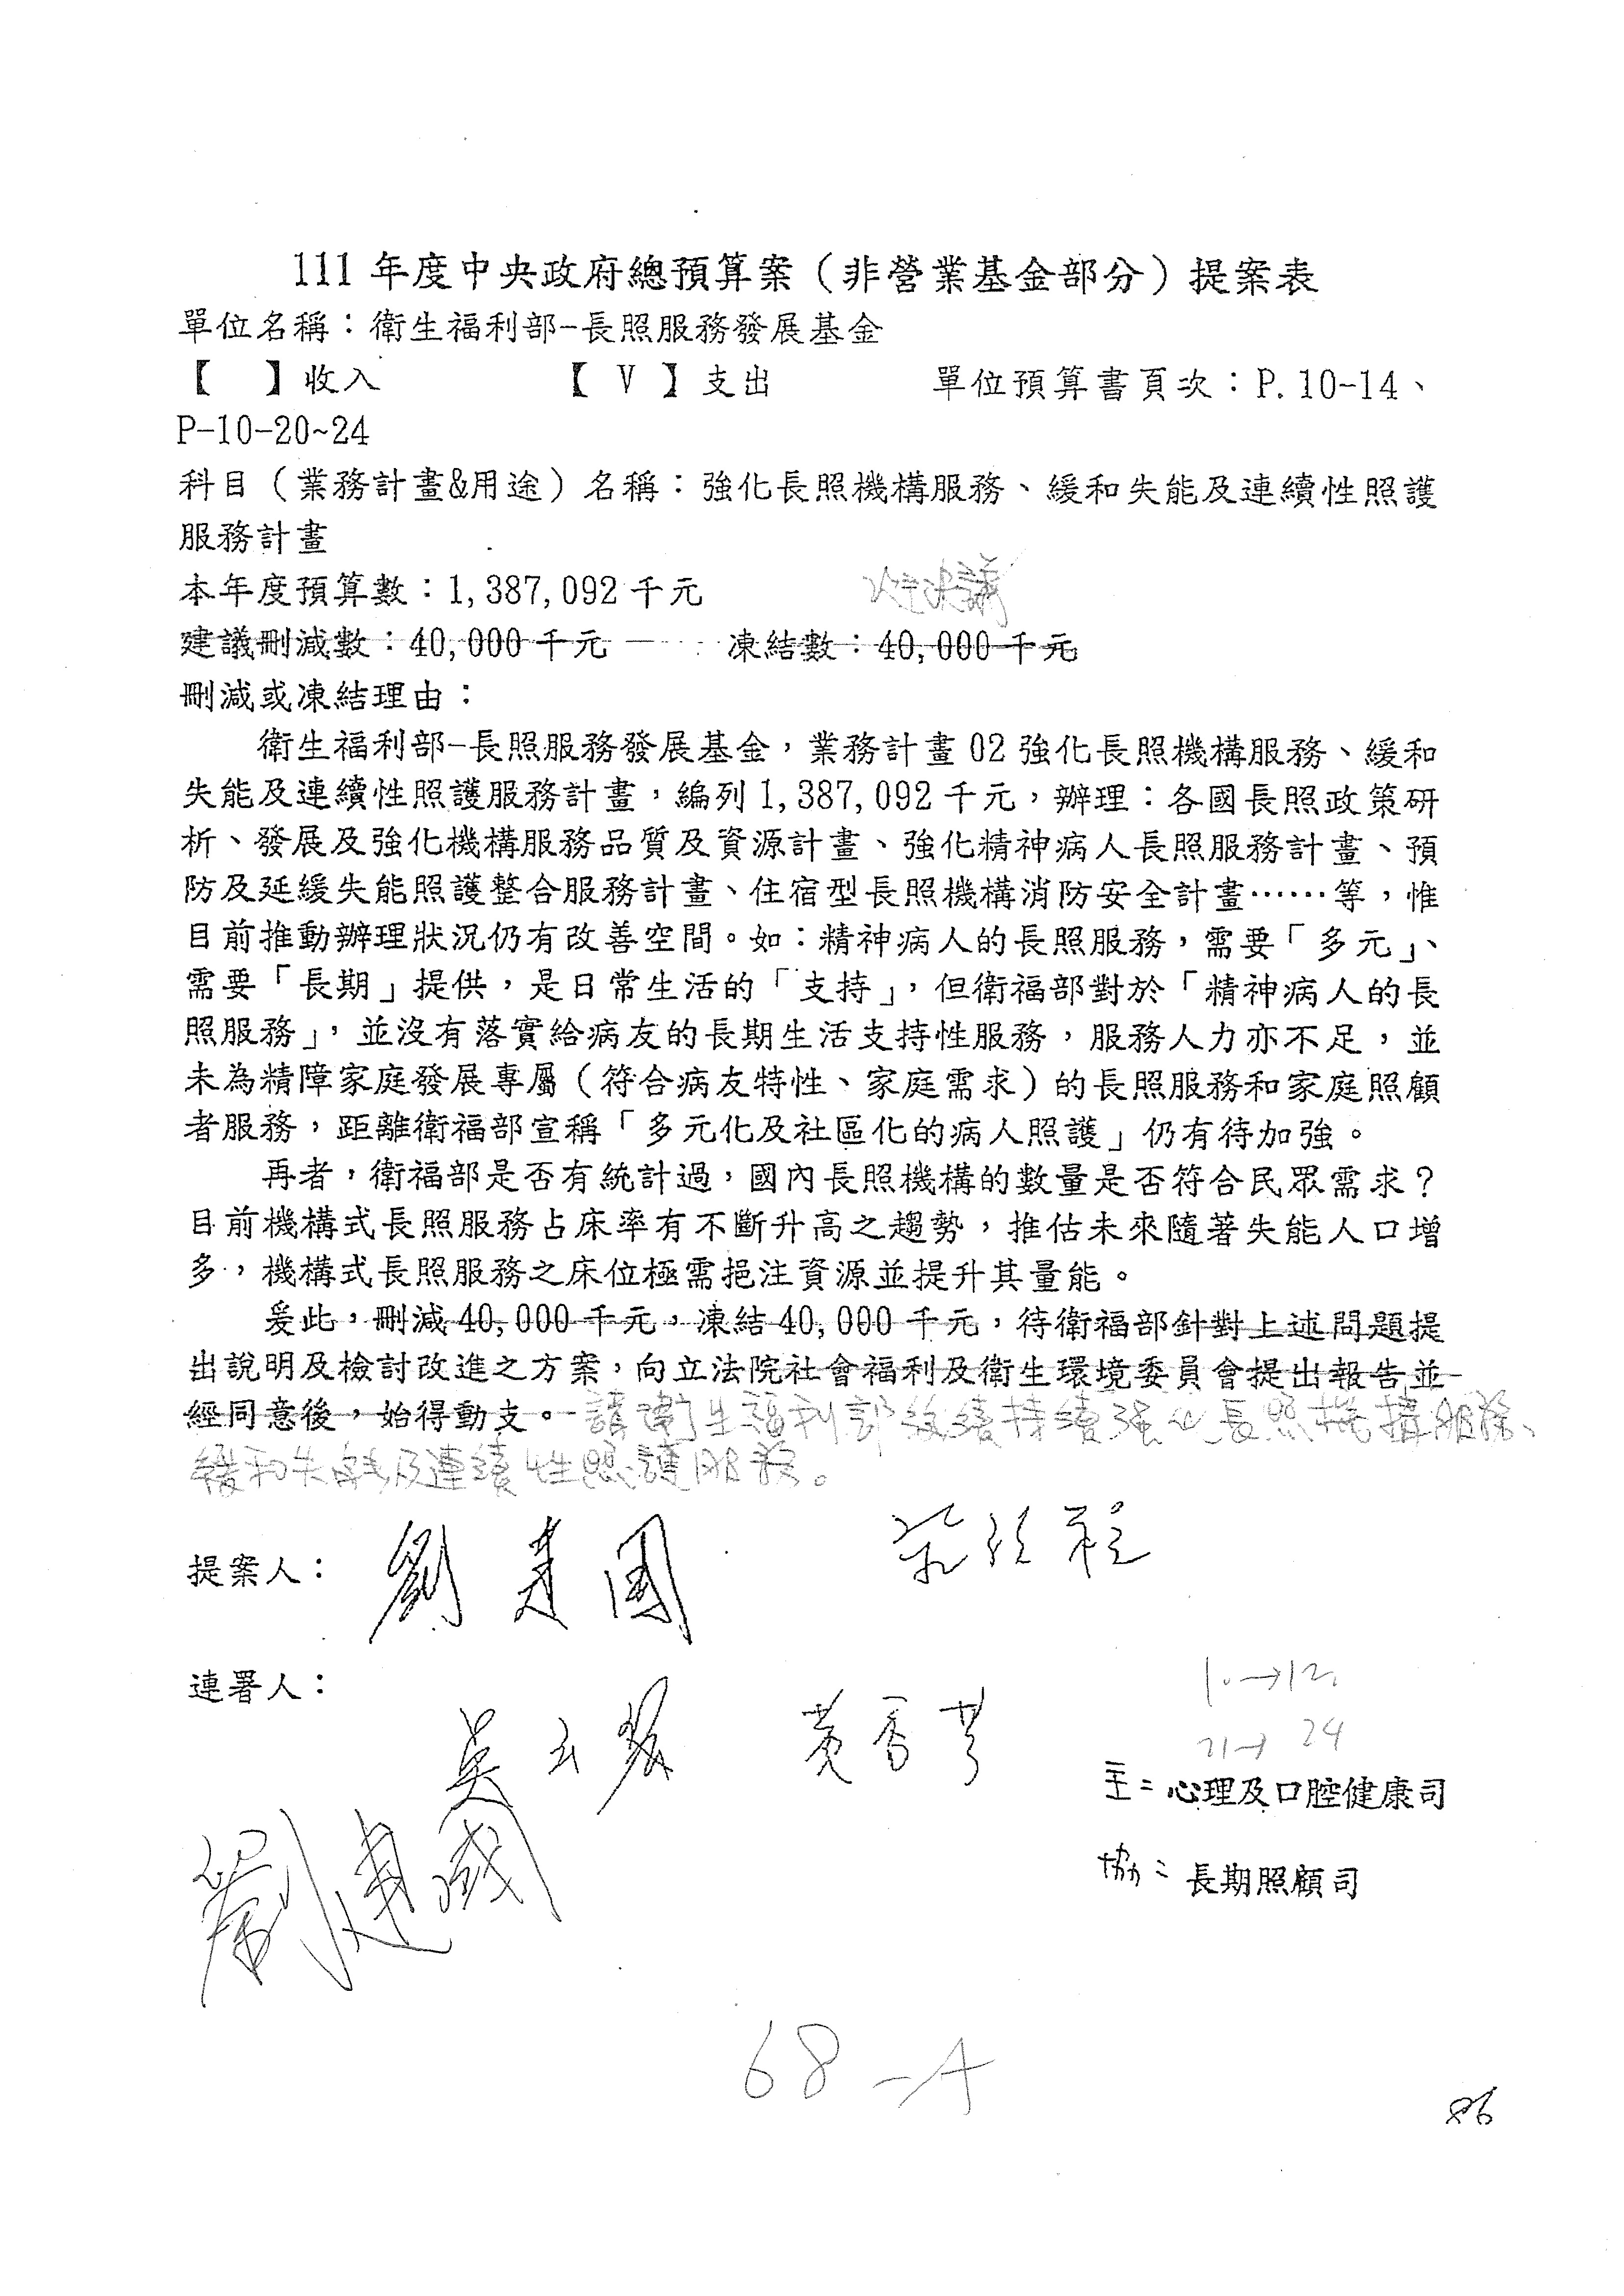 111 年度中央政府總預算案（非營業基金部分）提案表
單位名稱：衛生福利部-長照服務發展基金
【　】收入　　【 V 】支出　　單位預算書頁次：P. 10-14、
P-10-20~24
科目（業務計畫&用途）名稱：強化長照機構服務、緩和失能及連續性照護
服務計畫
本年度預算數：1,387,092 千元　　改主決議
建議刪減數：40,000 千元　　凍結數：40,000 千元
刪減或凍結理由：
衛生福利部-長照服務發展基金，業務計畫 02 強化長照機構服務、緩和
失能及連續性照護服務計畫，編列 1,387,092 千元，辦理：各國長照政策研
析、發展及強化機構服務品質及資源計畫、強化精神病人長照服務計畫、預
防及延緩失能照護整合服務計畫、住宿型長照機構消防安全計畫……等，惟
目前推動辦理狀況仍有改善空間。如：精神病人的長照服務，需要「多元」、
需要「長期」提供，是日常生活的「支持」，但衛福部對於「精神病人的長
照服務」，並沒有落實給病友的長期生活支持性服務，服務人力亦不足，並
未為精障家庭發展專屬（符合病友特性、家庭需求）的長照服務和家庭照顧
者服務，距離衛福部宣稱「多元化及社區化的病人照護」仍有待加強。
再者，衛福部是否有統計過，國內長照機構的數量是否符合民眾需求？
目前機構式長照服務占床率有不斷升高之趨勢，推估未來隨著失能人口增
多，機構式長照服務之床位極需挹注資源並提升其量能。
爰此，刪減 40,000 千元，凍結 40,000 千元，待衛福部針對上述問題提
出說明及檢討改進之方案，向立法院社會福利及衛生環境委員會提出報告並
經同意後，始得動支。請衛生福利部後續持續強化長照機構服務、
緩和失能及連續性照護服務。
提案人：劉建國　莊競程
連署人：
吳玉琴　黃秀芳
10→12
21→24
主：心理及口腔健康司
協：長期照顧司
68-4
86